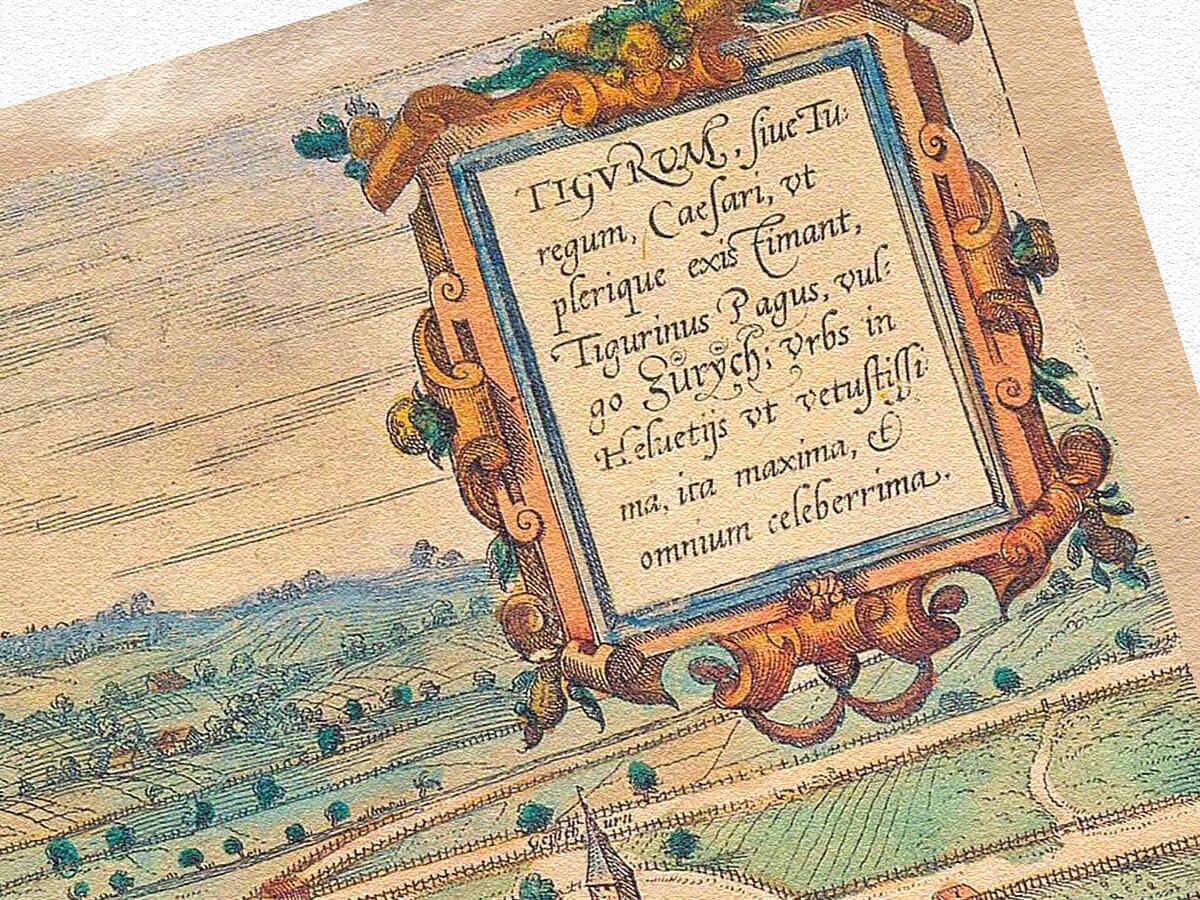 TIGVRVM, ſiue Tu:
regum, Caeſari, vt
plerique existimant,
Tigurinus Pagus, vul:
go Zürÿch; Vrbs in
Heluetijs vt vetuſtiſſi:
ma, ita maxima, et
omnium celeberrima.